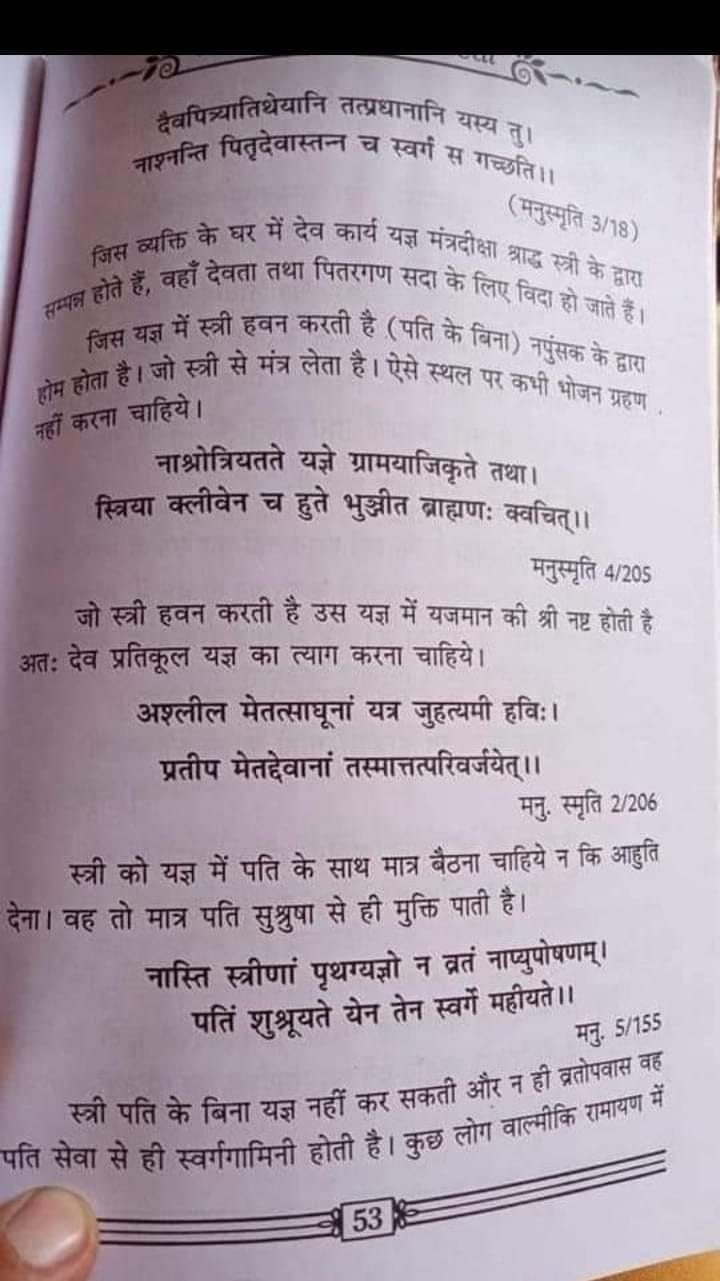 दैवपित्र्यातिथेयानि तत्प्रधानानि यस्य तु।
नाश्नन्ति पितृदेवास्तन्न च स्वर्गं स गच्छति।।
(मनुस्मृति 3/18)
जिस व्यक्ति के घर में देव कार्य यज्ञ मंत्रदीक्षा श्राद्ध स्त्री के द्वारा
सम्पन्न होते हैं, वहाँ देवता तथा पितरगण सदा के लिए विदा हो जाते हैं।
जिस यज्ञ में स्त्री हवन करती है (पति के बिना) नपुंसक के द्वारा
होम होता है। जो स्त्री से मंत्र लेता है। ऐसे स्थल पर कभी भोजन ग्रहण
नहीं करना चाहिये।
नाश्रोत्रियतते यज्ञे ग्रामयाजिकृते तथा।
स्त्रिया क्लीवेन च हुते भुञ्जीत ब्राह्मणः क्वचित्।।
मनुस्मृति 4/205
जो स्त्री हवन करती है उस यज्ञ में यजमान की श्री नष्ट होती है
अतः देव प्रतिकूल यज्ञ का त्याग करना चाहिये।
अश्लील मेतत्साधूनां यत्र जुहत्यमी हविः।
प्रतीप मेतद्देवानां तस्मात्तत्परिवर्जयेत्।।
मनु. स्मृति 2/206
स्त्री को यज्ञ में पति के साथ मात्र बैठना चाहिये न कि आहुति
देना। वह तो मात्र पति सुश्रुषा से ही मुक्ति पाती है।
नास्ति स्त्रीणां पृथग्यज्ञो न व्रतं नाप्युपोषणम्।
पतिं शुश्रूयते येन तेन स्वर्गे महीयते।।
मनु. 5/155
स्त्री पति के बिना यज्ञ नहीं कर सकती और न ही व्रतोपवास वह
पति सेवा से ही स्वर्गगामिनी होती है। कुछ लोग वाल्मीकि रामायण में
53